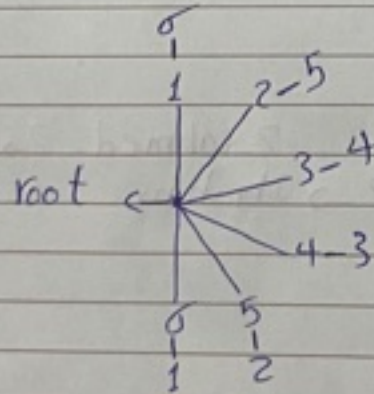 6
1 2-5
3-4
root
4-3
6 5
1 2